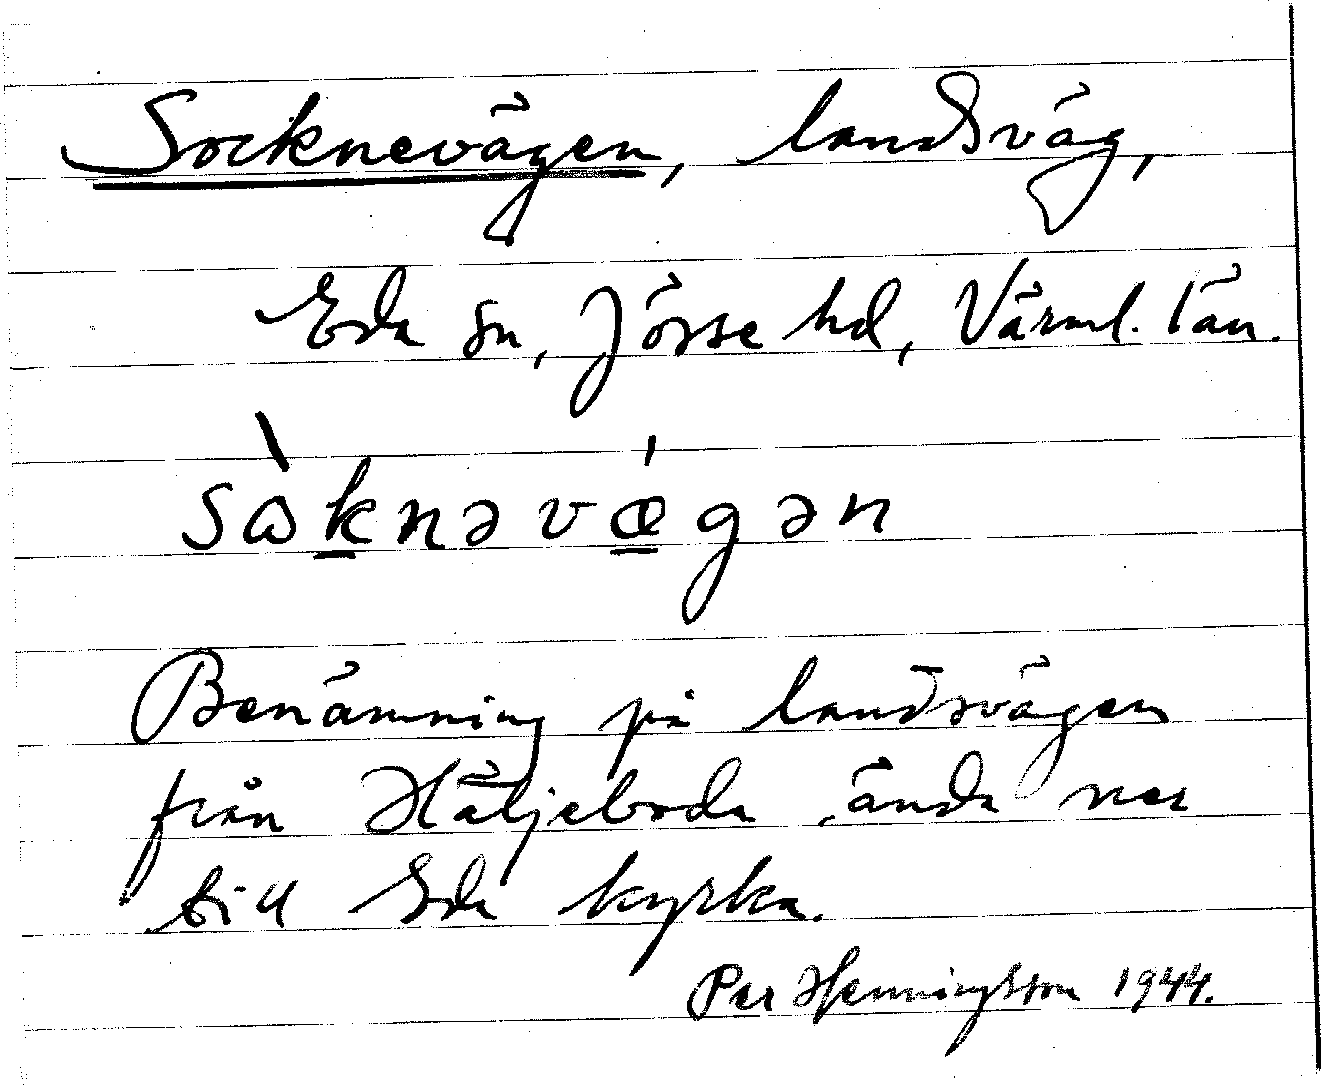 Socknevägen, landsväg,
Eda sn, Jösse hd, Värml. län.
sὼknəvǽgən
Benämning på landsvägen
från Häljeboda ända ner
till Eda kyrka.
Per Henningsson 1944.